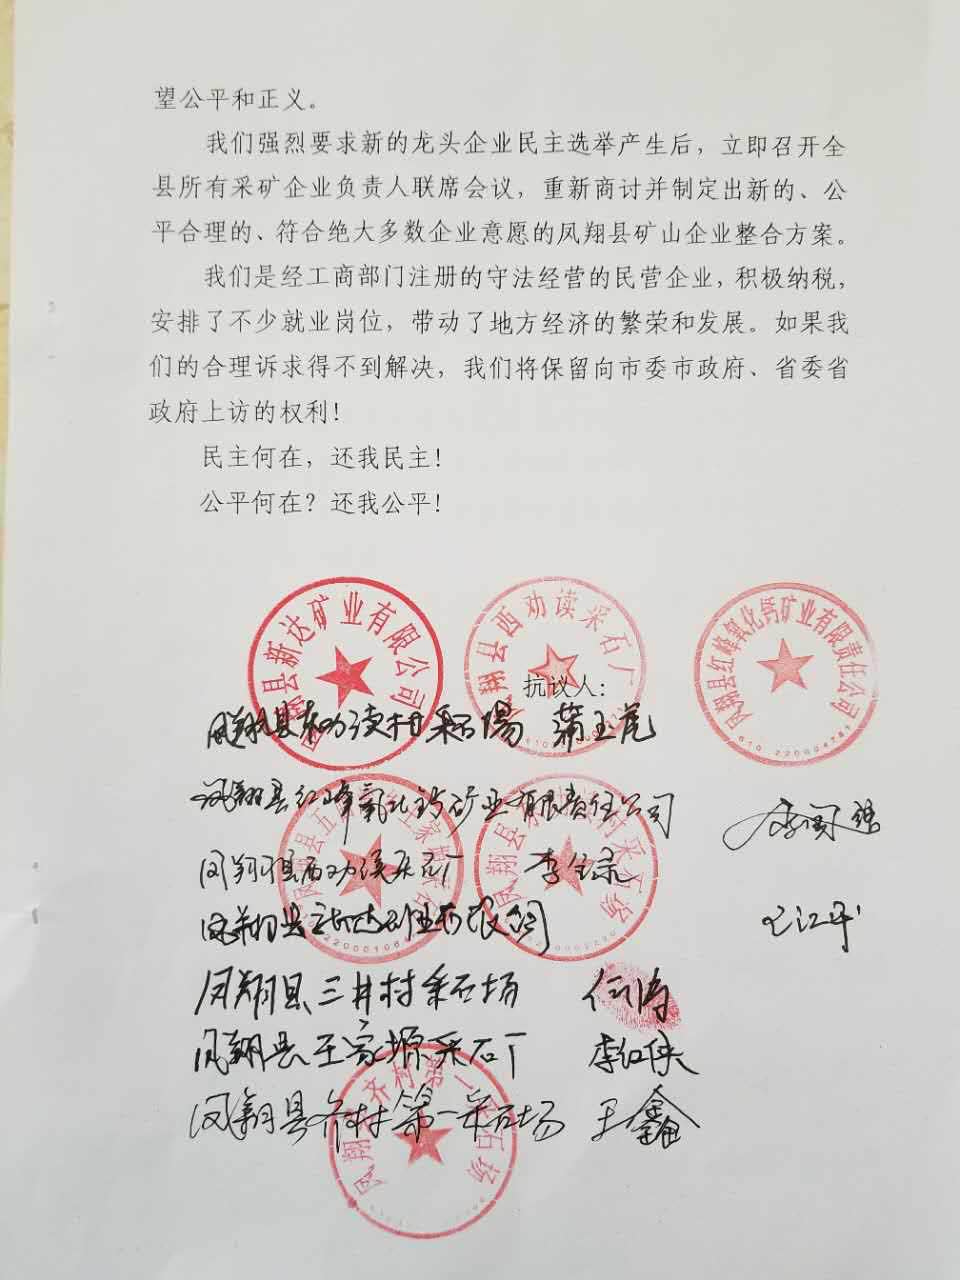 望公平和正义。
我们强烈要求新的龙头企业民主选举产生后，立即召开全
县所有采矿企业负责人联席会议，重新商讨并制定出新的、公
平合理的、符合绝大多数企业意愿的凤翔县矿山企业整合方案。
我们是经工商部门注册的守法经营的民营企业，积极纳税，
安排了不少就业岗位，带动了地方经济的繁荣和发展。如果我
们的合理诉求得不到解决，我们将保留向市委市政府、省委省
政府上访的权利！
民主何在，还我民主！
公平何在？还我公平！
县新达矿业有限公司
翔县西劝读采石厂
凤翔县红峰氧化钙矿业有限责任公司
610 2200047
抗议人：
凤翔县东劝读村采石場 蒲玉
凤翔县红峰氧化钙矿业有限责任公司 李
凤翔县西劝读采石厂 李
凤翔县新达矿业有限公司 江平
凤翔县三井村采石场 任涛
凤翔县王家塬采石厂 李红侠
凤翔县齐村第一采石场 王鑫
凤翔县五
王家塬采石
22000106
凤翔县
村采石场
凤翔
齐村第一采石场